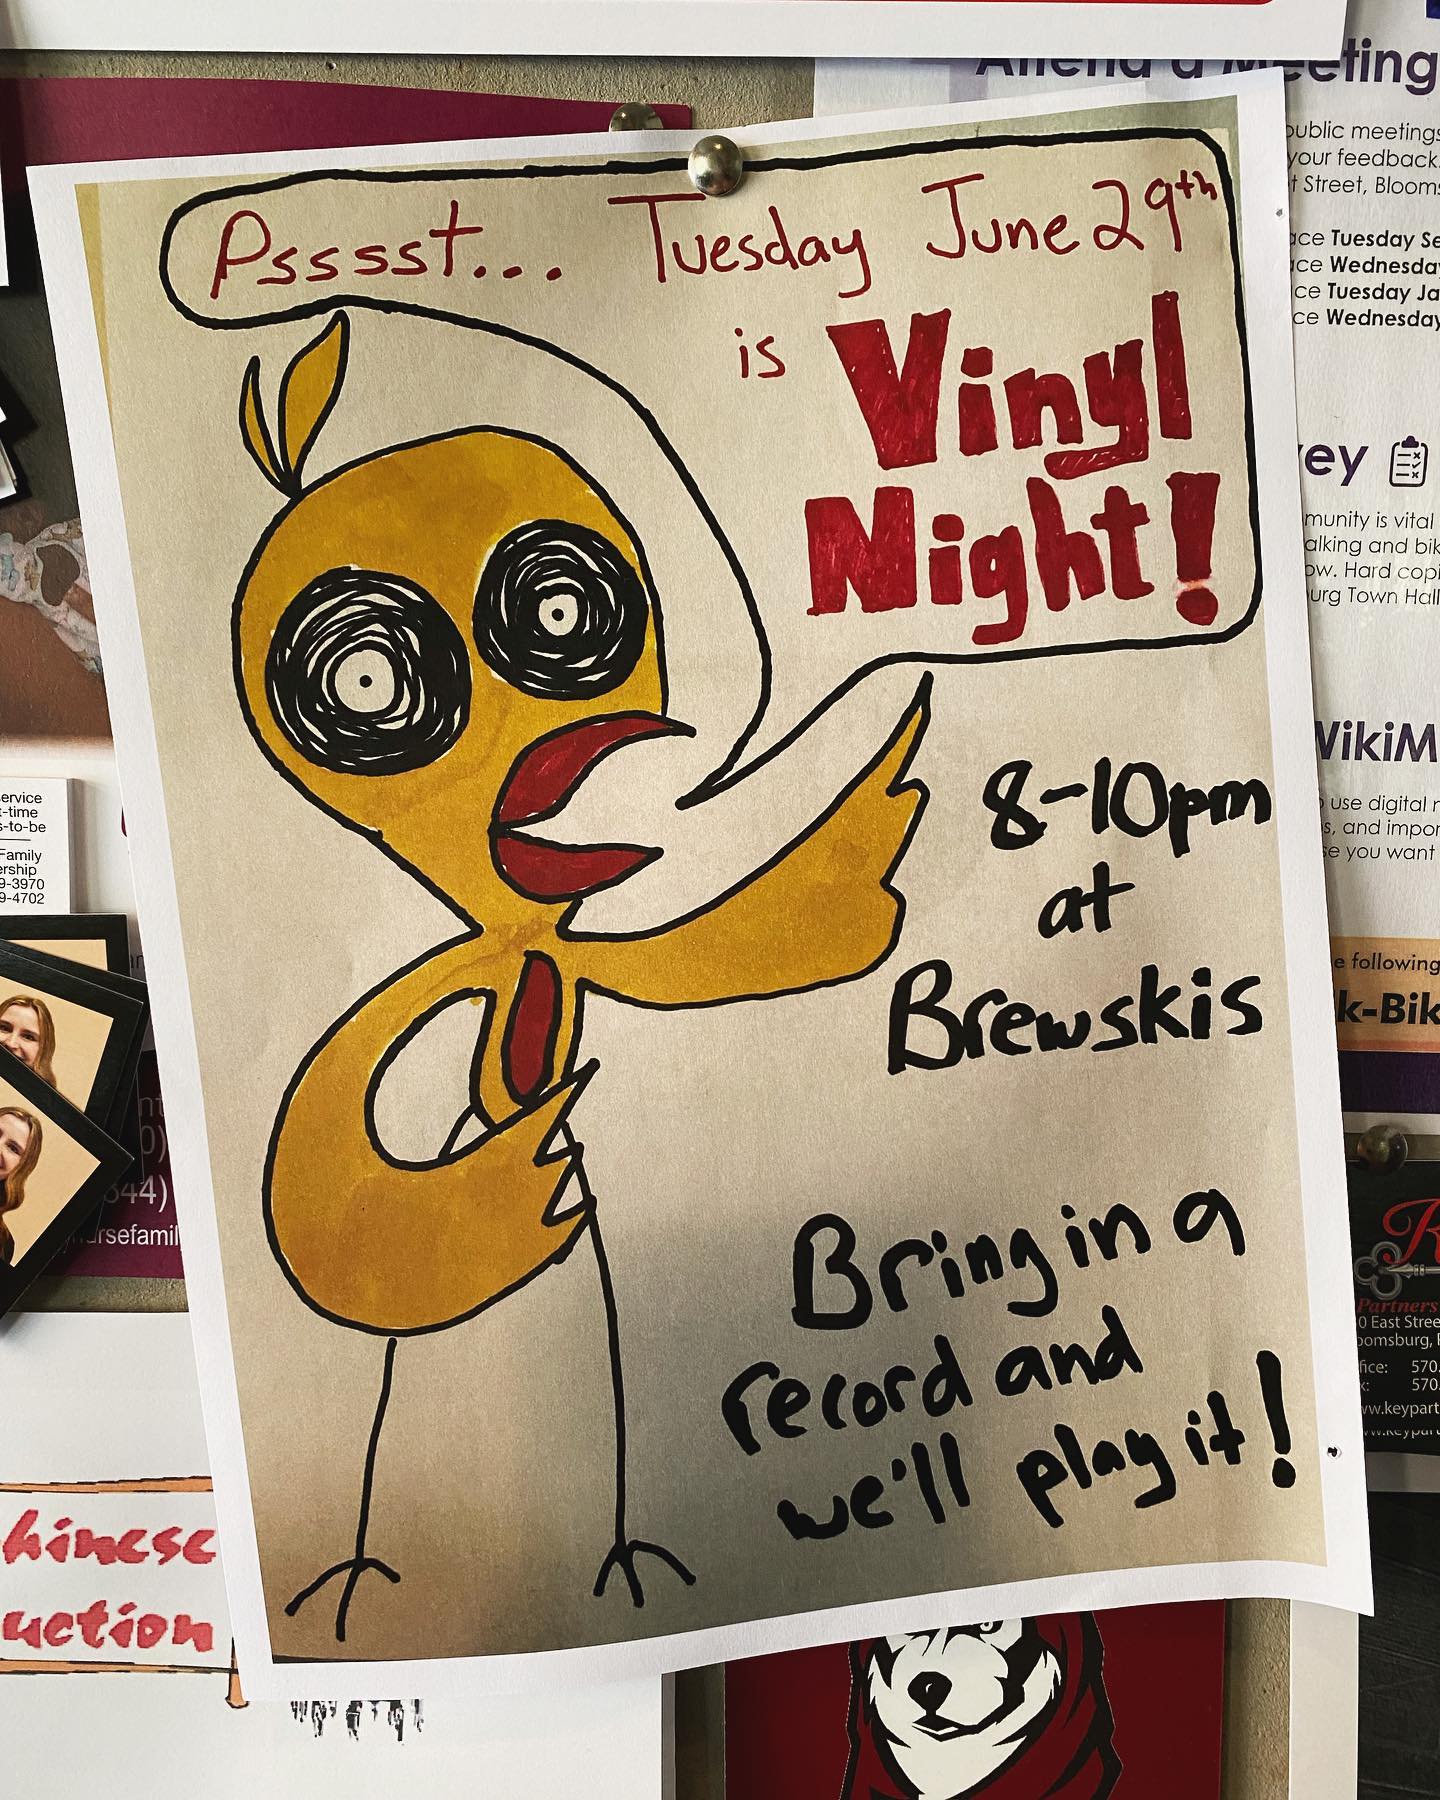 Psssst... Tuesday June 29th
is Vinyl
Night!
8-10pm
at
Brewskis
Bring in a
record and
we'll play it!
Attend a Meeting
public meetings
your feedback.
Street, Blooms
Tuesday Se
Wednesday
Tuesday Ja
Wednesday
vey
munity is vital
alking and bik
ow. Hard copi
urg Town Hall
WikiM
use digital
s, and impor
se you want
e following
k-Bik
Partners
0 East Stree
oomsburg, P
fice: 570.
x: 570.
ww.keypart
service
t-time
s-to-be
Family
ership
9-3970
9-4702
nursefamil
hinese
uction